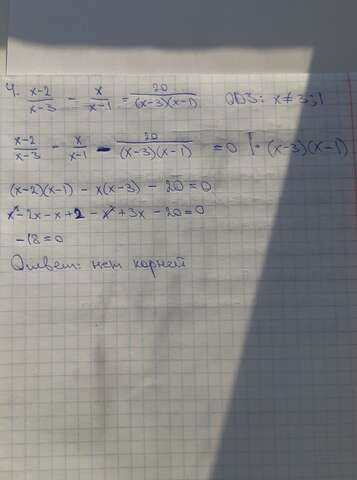 4. (x-2)/(x-3) - x/(x-1) = 20/((x-3)(x-1)) ОДЗ: x≠3;1
(x-2)/(x-3) - x/(x-1) - 20/((x-3)(x-1)) = 0 |· (x-3)(x-1)
(x-2)(x-1) - x(x-3) - 20 = 0
x²-2x-x+2-x²+3x-20=0
-18=0
Ответ: нет корней